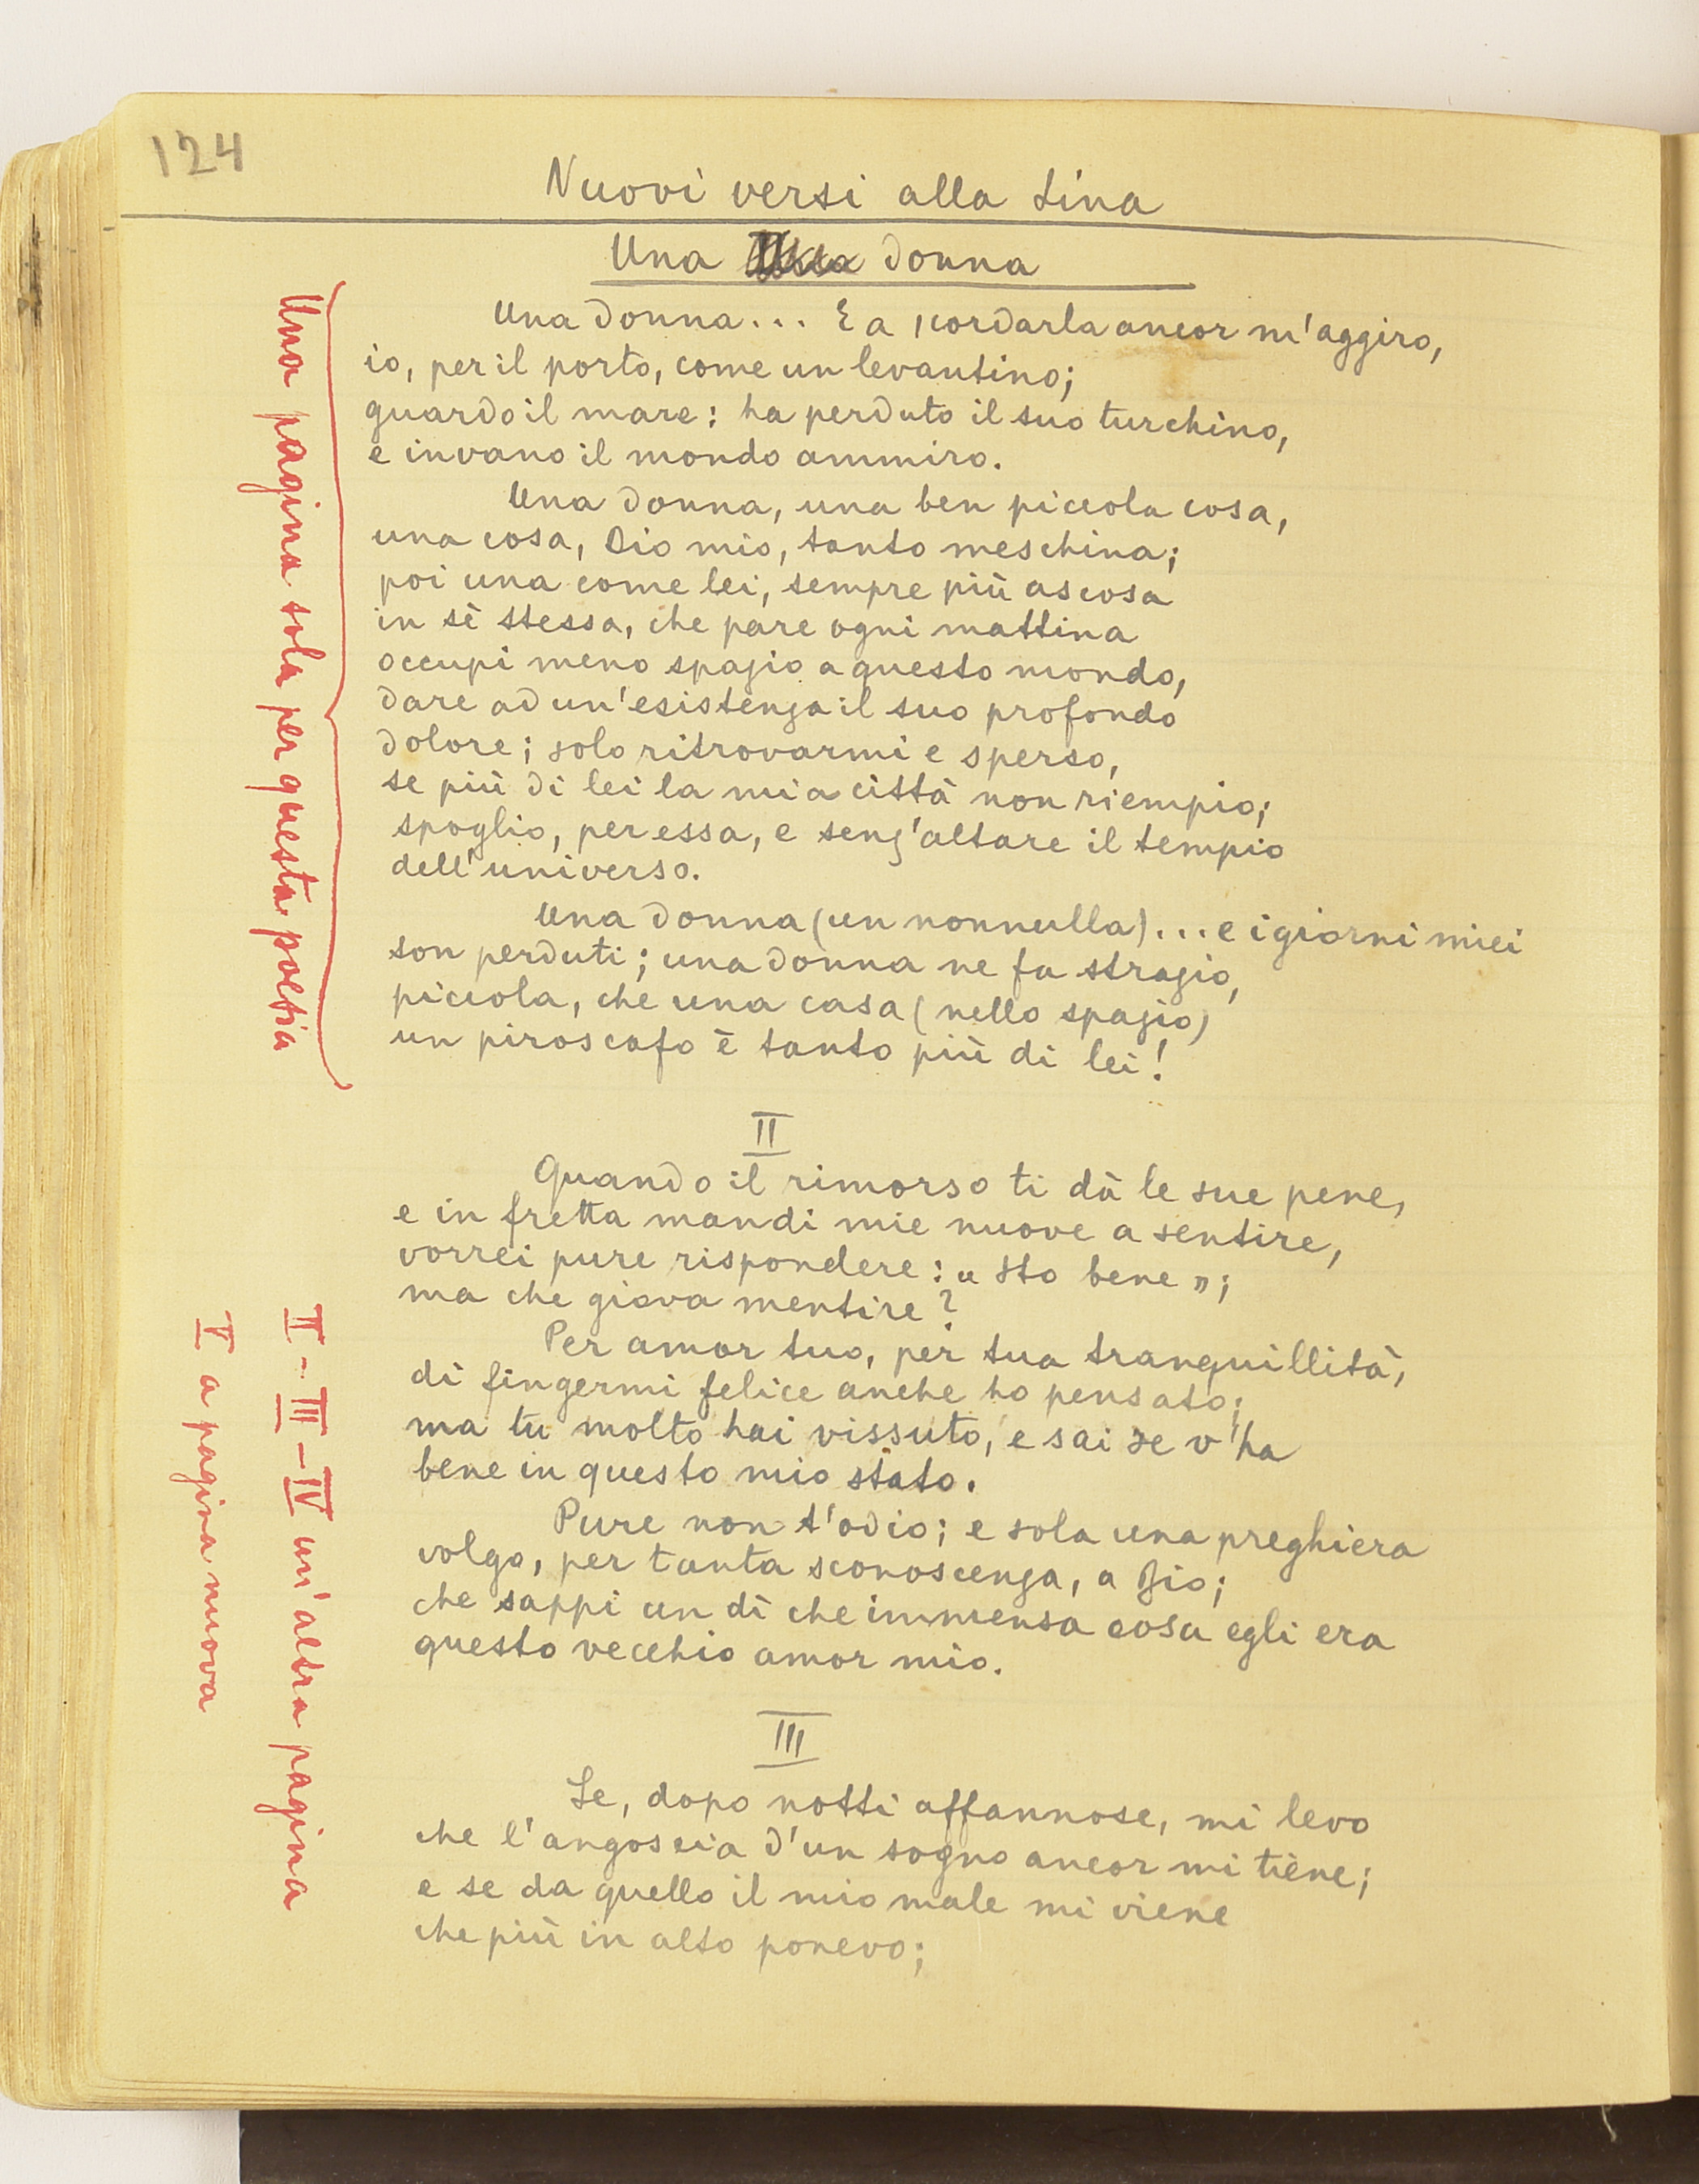 124
Nuovi versi alla Lina
Una donna
Una donna... E a scordarla ancor m'aggiro,
io, per il porto, come un levantino;
guardo il mare: ha perduto il suo turchino,
e invano il mondo ammiro.
Una donna, una ben piccola cosa,
una cosa, Dio mio, tanto meschina;
poi una come lei, sempre più ascosa
in sè stessa, che pare ogni mattina
occupi meno spazio a questo mondo,
dare ad un'esistenza il suo profondo
dolore; solo ritrovarmi e sperso,
se più di lei la mia città non riempio;
spoglio, per essa, e senz'altare il tempio
dell'universo.
Una donna (un nonnulla)... e i giorni miei
son perduti; una donna ne fa strazio,
piccola, che una casa (nello spazio)
un piroscafo è tanto più di lei!
II
Quando il rimorso ti dà le sue pene,
e in fretta mandi mie nuove a sentire,
vorrei pure rispondere: « Sto bene »;
ma che giova mentire?
Per amor tuo, per tua tranquillità,
di fingermi felice anche ho pensato;
ma tu molto hai vissuto, e sai se v'ha
bene in questo mio stato.
Pure non t'odio; e sola una preghiera
volgo, per tanta sconoscenza, a Dio;
che sappi un dì che immensa cosa egli era
questo vecchio amor mio.
III
Se, dopo notti affannose, mi levo
che l'angoscia d'un sogno ancor mi tiène;
e se da quello il mio male mi viene
che più in alto ponevo;
Una pagina sola per questa poesia
II - III - IV un'altra pagina
V a pagina nuova